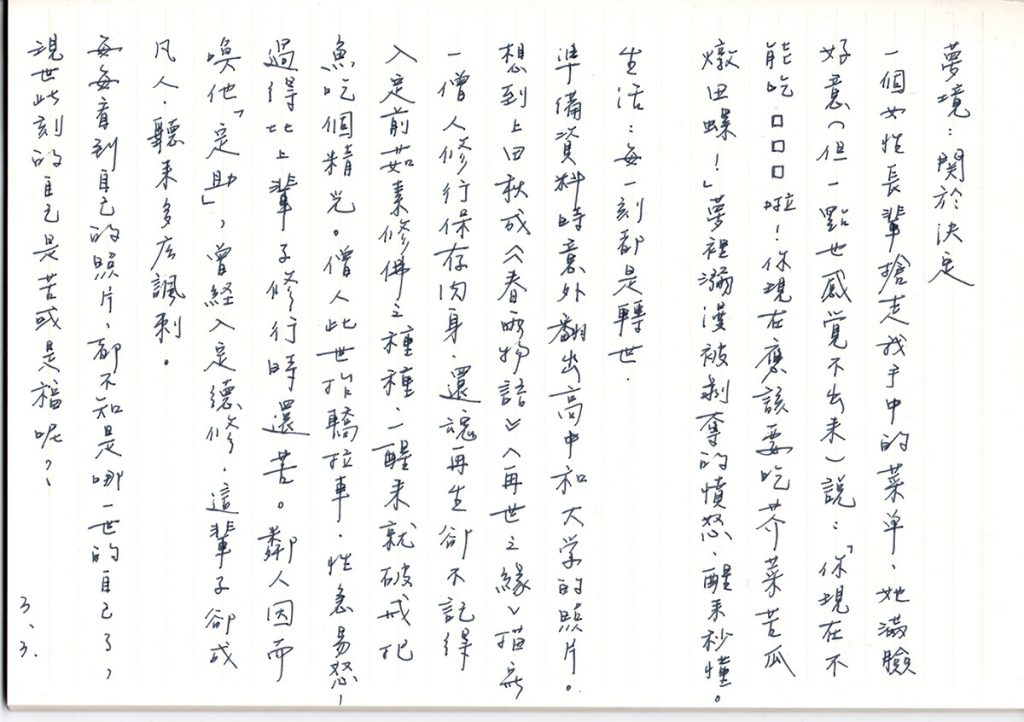 夢境：關於決定
一個女性長輩搶走我手中的菜单，她滿臉
好意（但一點也感覺不出來）說：「你現在不
能吃□□□啦！你現在應該要吃芥菜苦瓜
燉田螺！」夢裡瀰漫被剝奪的憤怒，醒來秒懂。
生活：每一刻都是轉世.
準備資料時意外翻出高中和大学的照片。
想到上田秋成《春雨物語》〈再世之緣〉描寫
一僧人修行保存肉身，還魂再生卻不記得
入定前茹素修佛之種種，一醒來就破戒把
魚吃個精光。僧人此世抬轎拉車，性急易怒，
過得比上輩子修行時還苦。鄰人因而
喚他「定助」，曾経入定德修，這輩子卻成
凡人，聽来多広諷刺。
每每看到自己的照片，都不知是哪一世的自己了，
現世此刻的自己是苦或是福呢？
3.3.